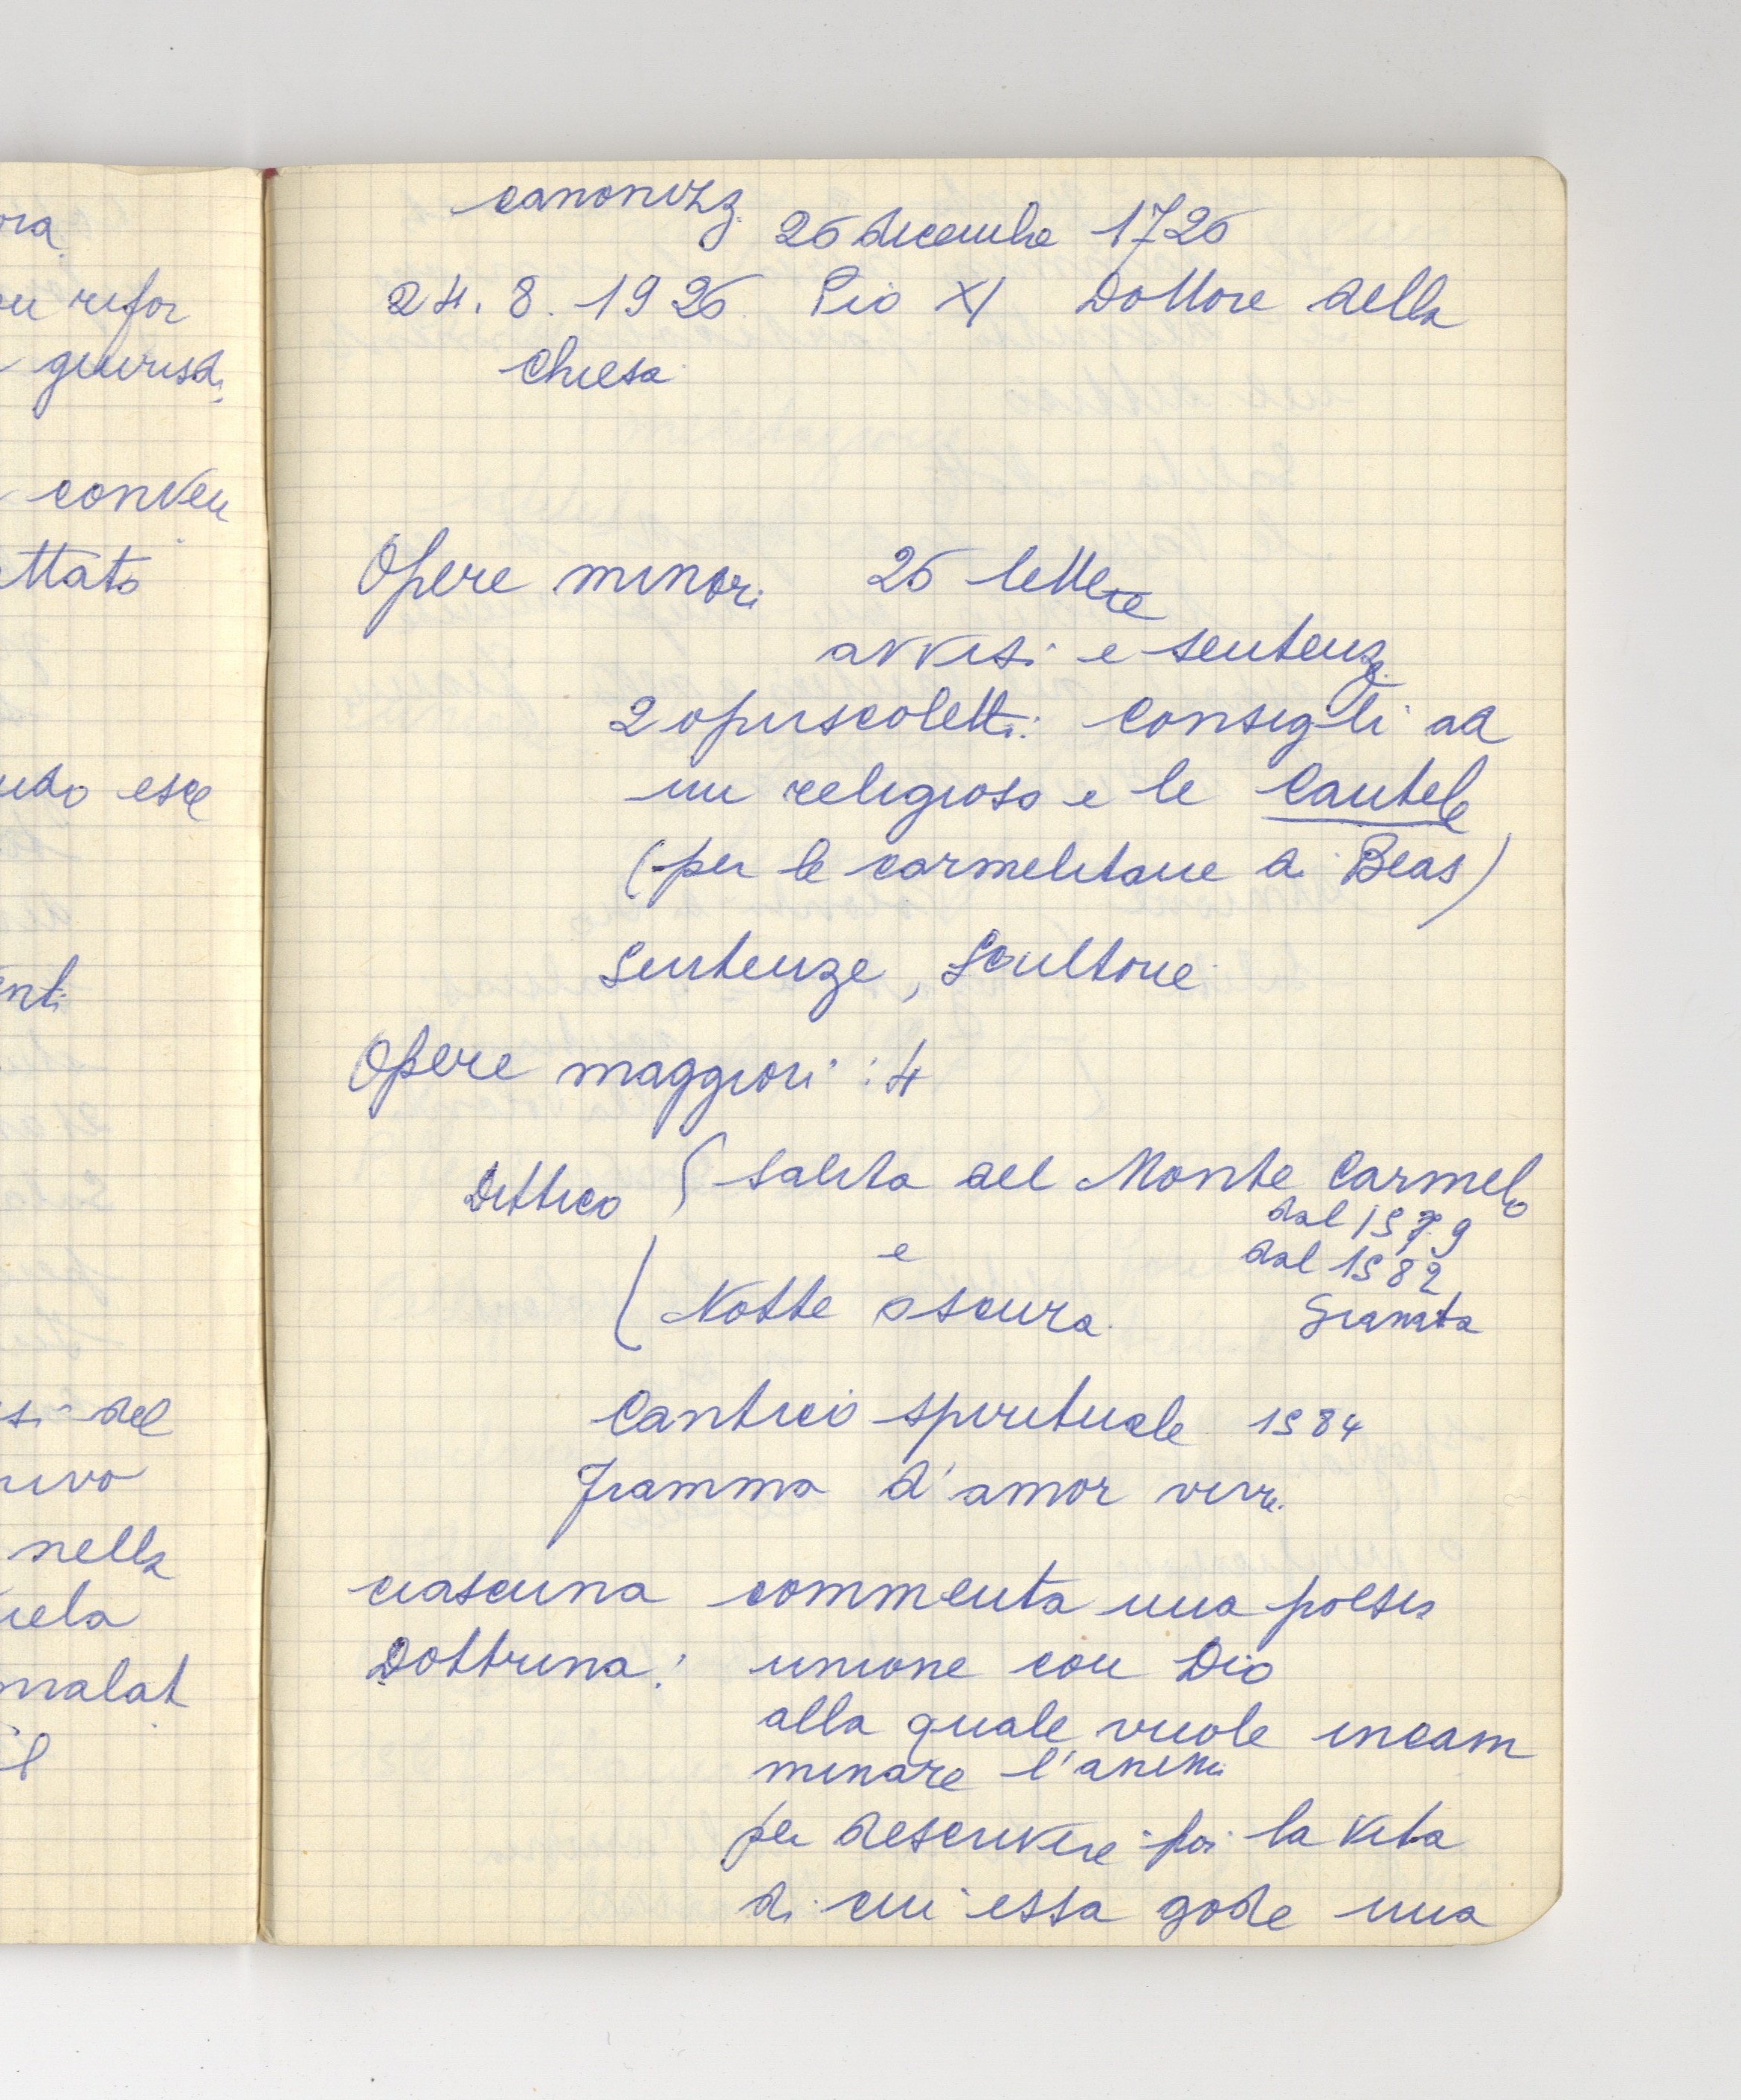 ora
ou rifor
giurisd.
conven
ettato
udo esce
enti
si del
nivo
nella
iela
malat
il
canonizz.
26 dicembre 1726
24. 8. 1926 Pio XI Dottore della
Chiesa
Opere minori 26 lettere
avvisi e sentenz.
2 opuscoletti: Consigli ad
un religioso e le Cautele
(per le carmelitane di Beas)
Sentenze, Scultone
Opere maggiori : 4
Dittico ( Salita del Monte Carmelo
dal 1579
e dal 1582
( Notte oscura Granata
Cantico spirituale 1584
Fiamma d'amor viva
ciascuna commenta una poesia
Dottrina: unione con Dio
alla quale vuole incam
minare l'anima
per descrivere poi la vita
di cui essa gode una